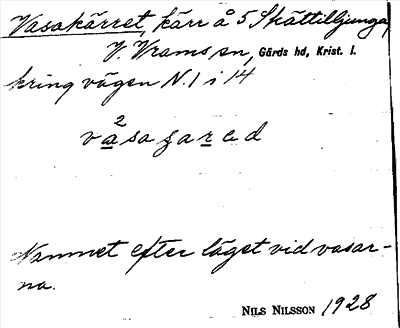 Vasakärret, kärr å 5 Skättilljunga,
V. Vrams sn, Gärds hd, Krist. l.
kring vägen N. 1 i 14
2
vasaʒared
Namnet efter läget vid vasar-
na.
NILS NILSSON 1928